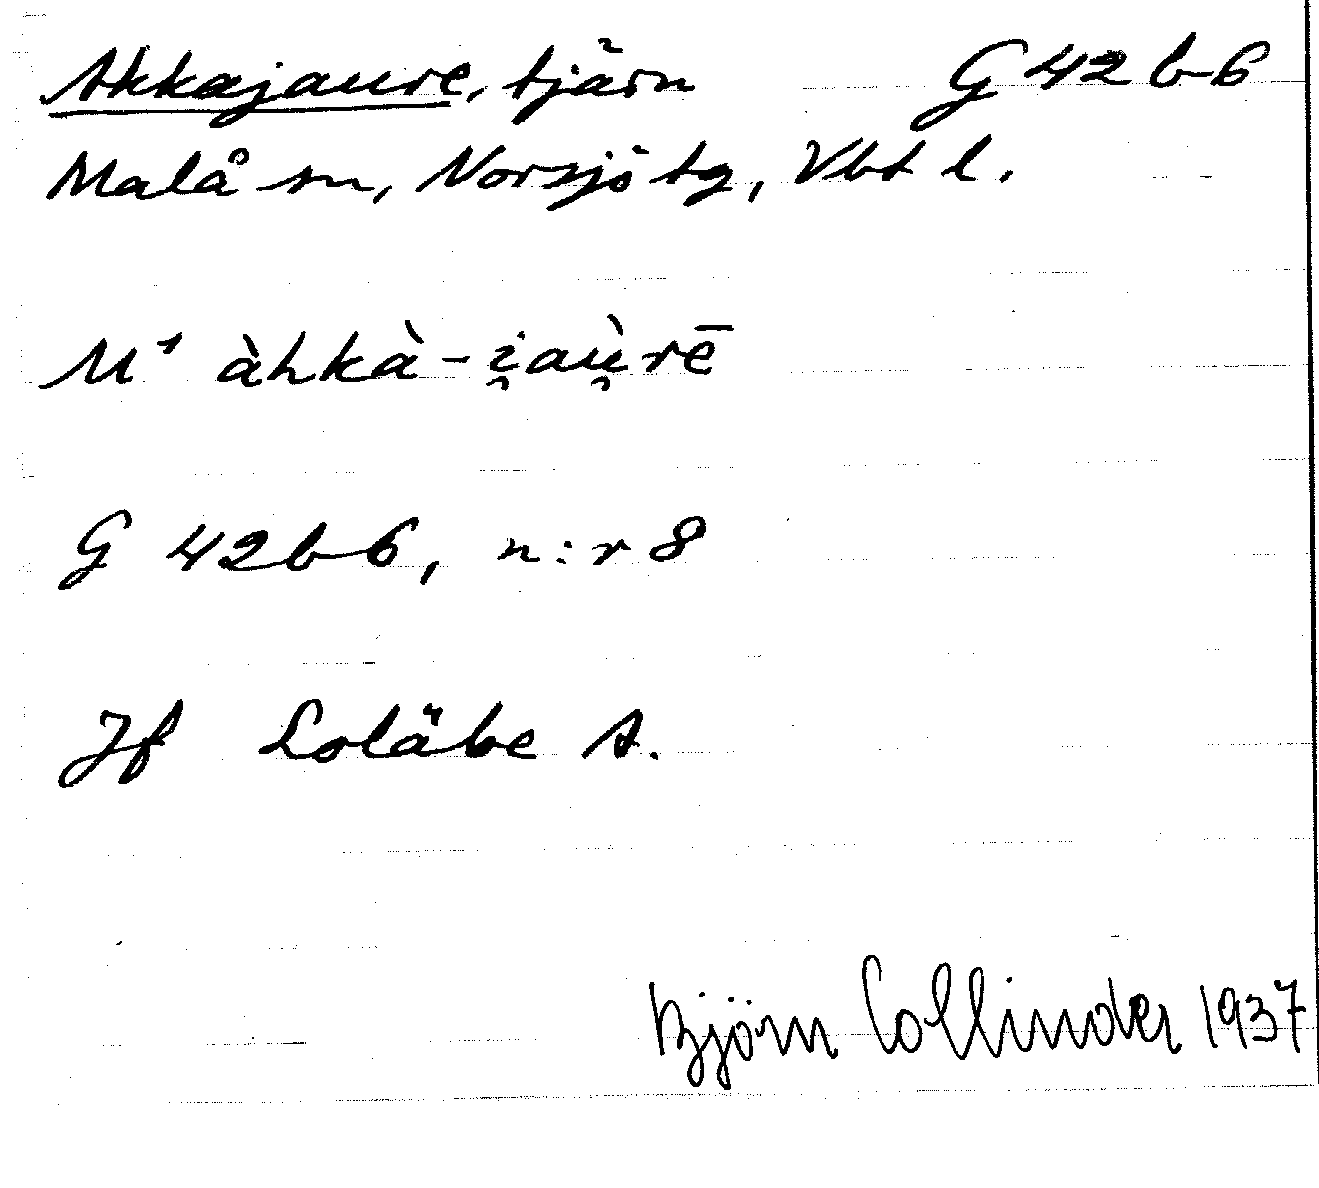 Akkajaure, tjärn G 42 b 6
Malå sn, Norsjö tg, Vbt l.
M¹ àhkà-i̯aù̯rē
G 42 b 6, n:r 8
Jf Loläbe A.
Björn Collinder 1937